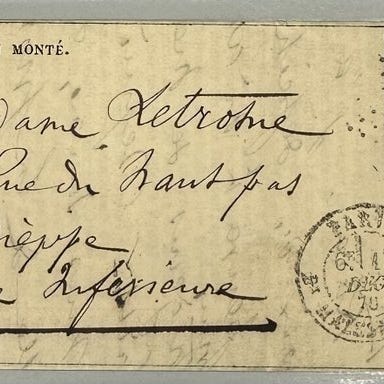 MONTÉ.
Dame Letrosne
Rue du haut pas
ièppe
Inférieure
PARI
6E
DEC
70